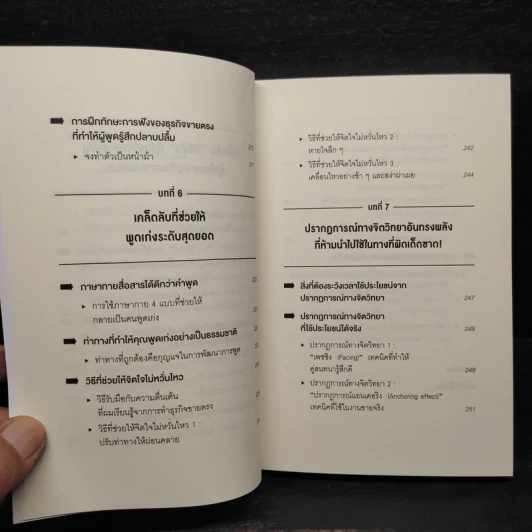 การฝึกทักษะการฟังของธุรกิจขายตรง
ที่ทำให้ผู้พูดรู้สึกปลาบปลื้ม
▸ จงทำตัวเป็นหน้าม้า
บทที่ 6
เคล็ดลับที่ช่วยให้
พูดเก่งระดับสุดยอด
ภาษากายสื่อสารได้ดีกว่าคำพูด
▸ การใช้ภาษากาย 4 แบบที่ช่วยให้
กลายเป็นคนพูดเก่ง
ท่าทางที่ทำให้คุณพูดเก่งอย่างเป็นธรรมชาติ
▸ ท่าทางที่ถูกต้องคือกุญแจในการพัฒนาการพูด
วิธีที่ช่วยให้จิตใจไม่หวั่นไหว
▸ วิธีรับมือกับความตื่นเต้น
ที่ผมเรียนรู้จากการทำธุรกิจขายตรง
▸ วิธีที่ช่วยให้จิตใจไม่หวั่นไหว 1 :
ปรับท่าทางให้ผ่อนคลาย
▸ วิธีที่ช่วยให้จิตใจไม่หวั่นไหว 2 :
หายใจลึก ๆ 242
▸ วิธีที่ช่วยให้จิตใจไม่หวั่นไหว 3 :
เคลื่อนไหวอย่างช้า ๆ และสง่าผ่าเผย 244
บทที่ 7
ปรากฏการณ์ทางจิตวิทยาอันทรงพลัง
ที่ห้ามนำไปใช้ในทางที่ผิดเด็ดขาด!
สิ่งที่ต้องระวังเวลาใช้ประโยชน์จาก
ปรากฏการณ์ทางจิตวิทยา 247
ปรากฏการณ์ทางจิตวิทยา
ที่ใช้ประโยชน์ได้จริง 249
▸ ปรากฏการณ์ทางจิตวิทยา 1 :
"เพซซิง (Pacing)" เทคนิคที่ทำให้
คู่สนทนารู้สึกดี 249
▸ ปรากฏการณ์ทางจิตวิทยา 2 :
"ปรากฏการณ์แทนเคอริง (Anchoring effect)"
เทคนิคที่ใช้ในงานขายจริง 251